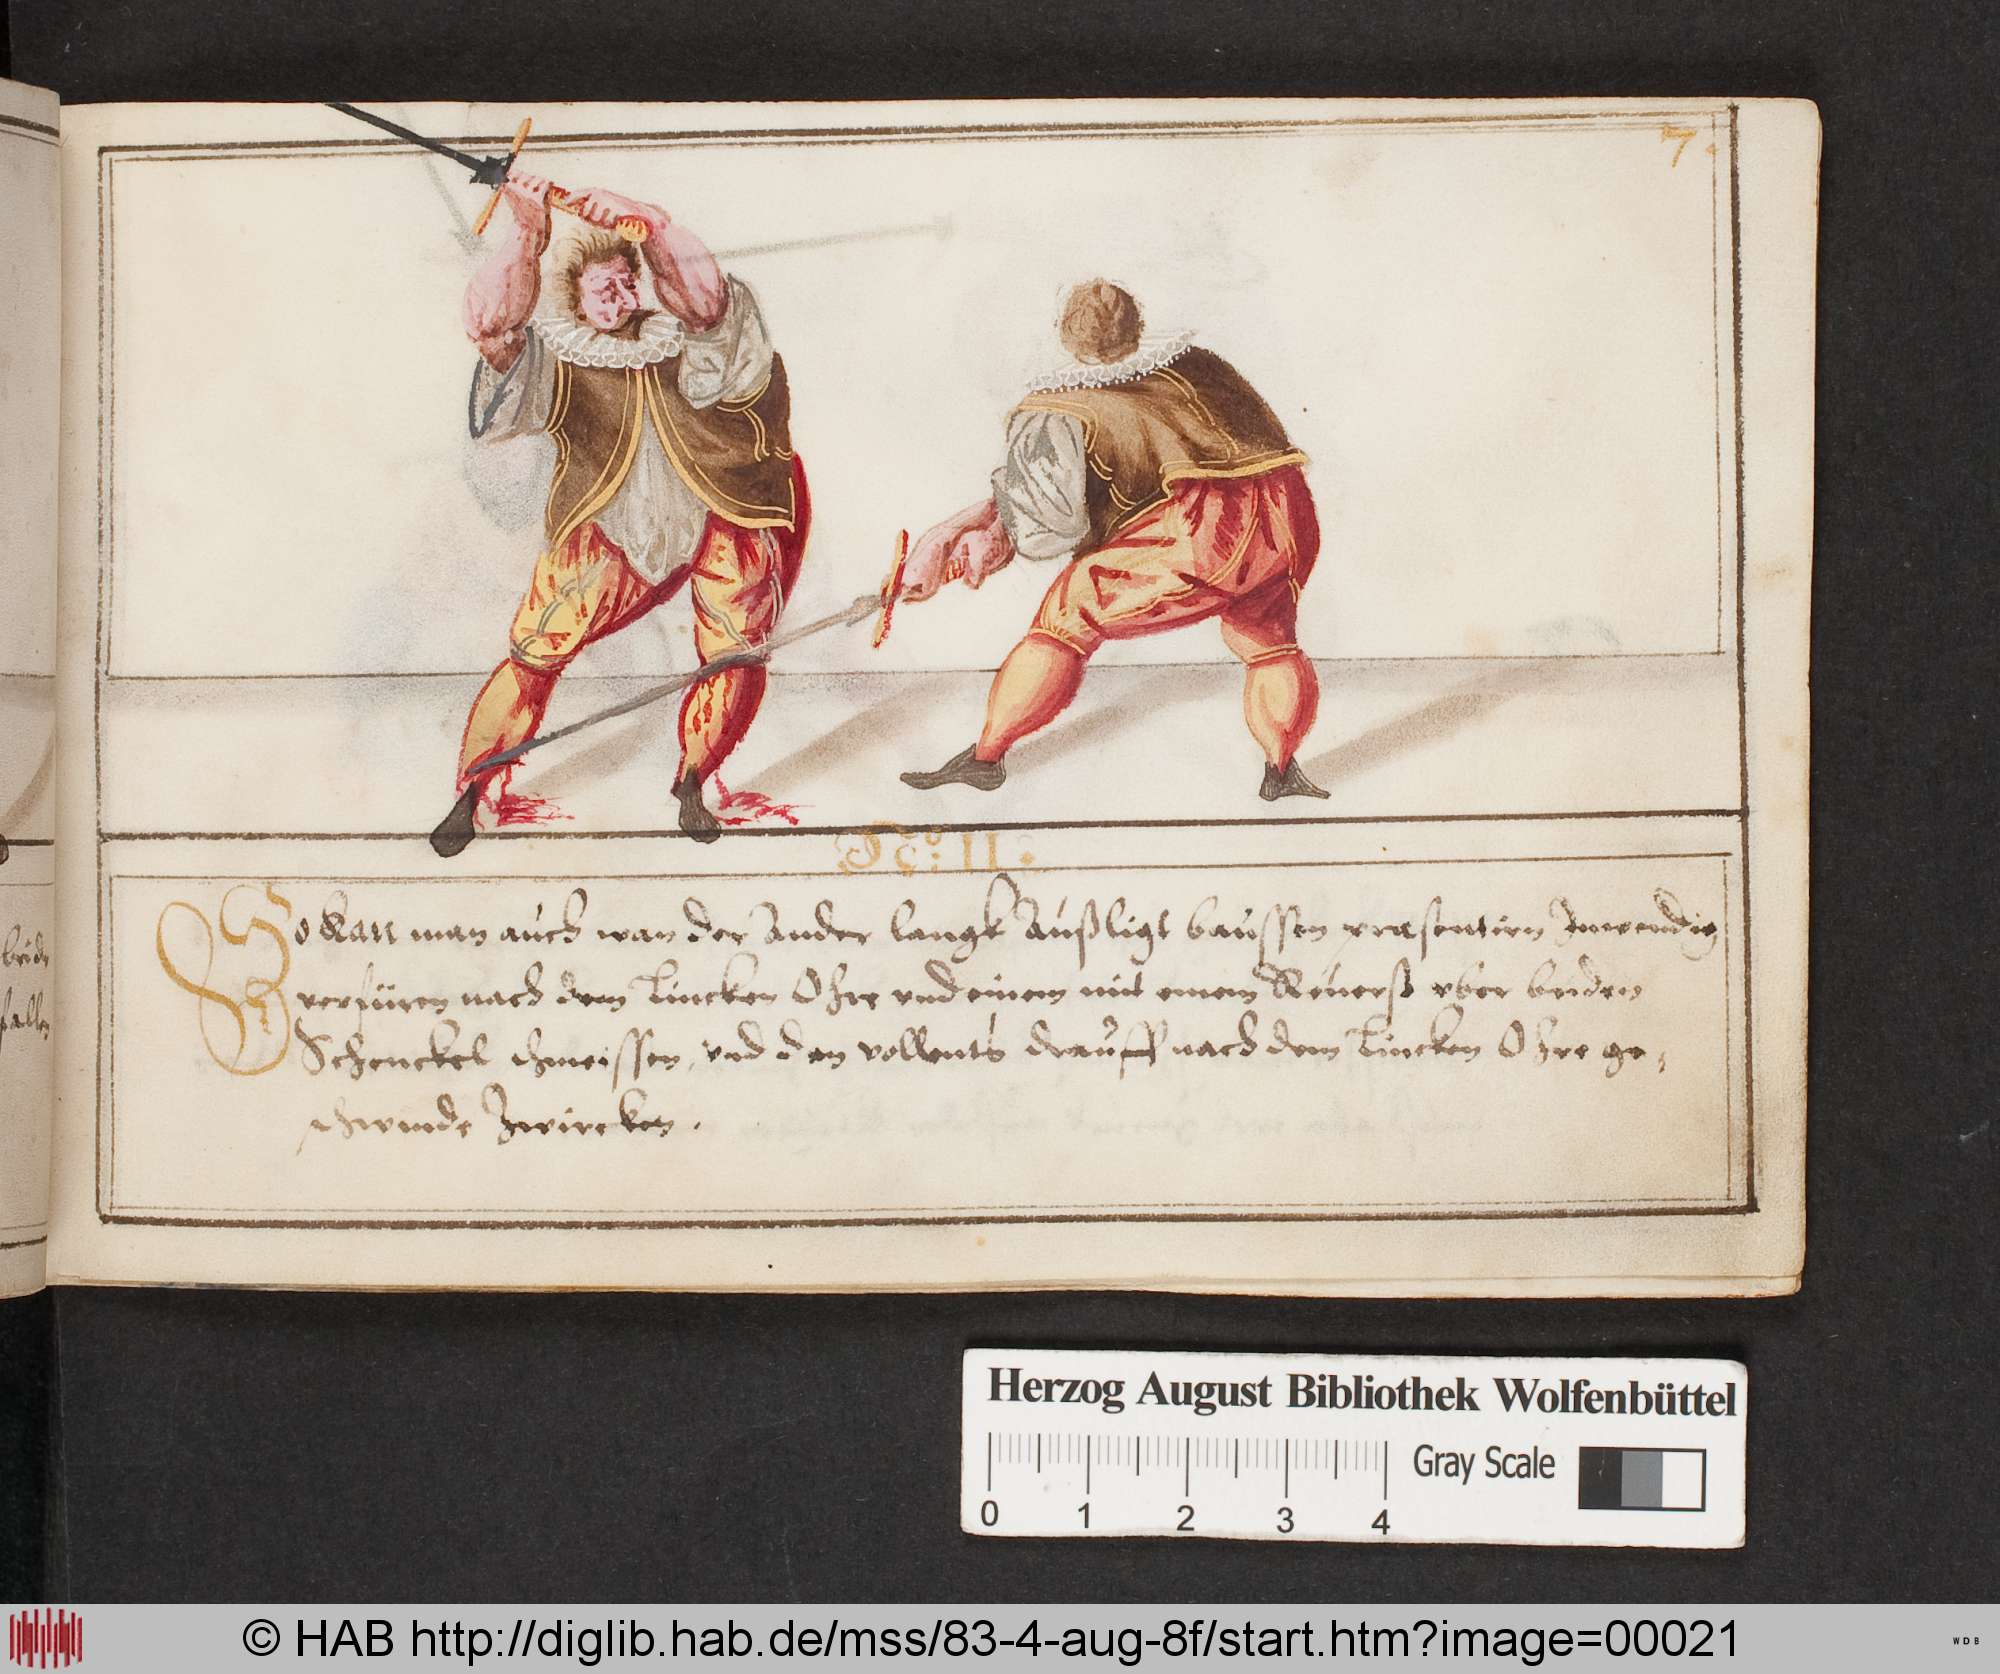 7.
N̊: 11.
So kan man auch wan der Ander langk Außligt baussen præsentirn Inwendig
verfüren nach dem Lincken Ohre vnd einem mit einem Reuerß vber beiden
Schenckel schmeissen, vnd den vollents drauff nach dem Lincken Ohre ge,
schwinde Zwircken.
beide
fallen
Herzog August Bibliothek Wolfenbüttel
0 1 2 3 4 Gray Scale
© HAB http://diglib.hab.de/mss/83-4-aug-8f/start.htm?image=00021
WDB